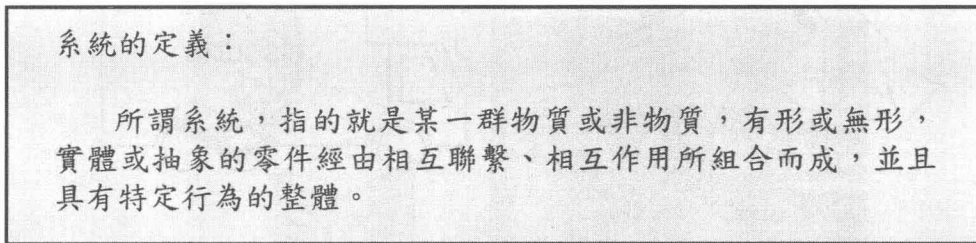 系統的定義：
所謂系統，指的就是某一群物質或非物質，有形或無形，
實體或抽象的零件經由相互聯繫、相互作用所組合而成，並且
具有特定行為的整體。